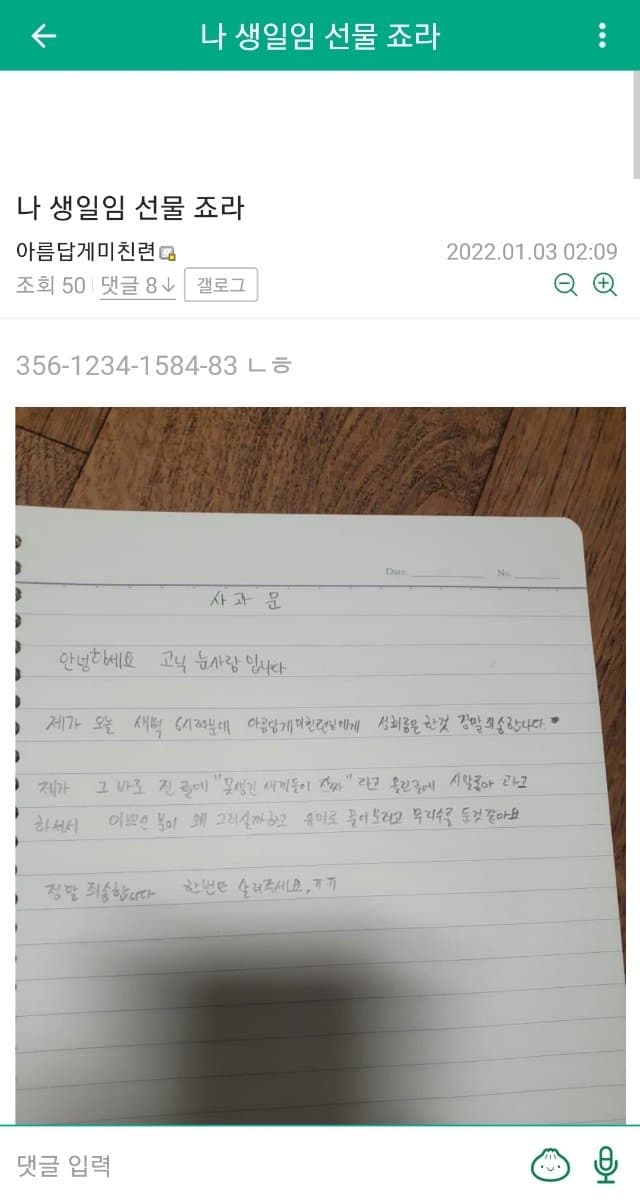 나 생일임 선물 죠라
나 생일임 선물 죠라
아름답게미친련
2022.01.03 02:09
조회 50 댓글 8↓ 갤로그
356-1234-1584-83 ㄴㅎ
Date. No.
사과문
안녕하세요 고닉 눈사람입니다
제가 오늘 새벽 6시 에 아름답게미친련님에게 성희롱을한것 정말죄송합니다.
제가 그 바로 전 글에 "못생긴 새끼들이 진짜" 라고 올린글에 시발롬아 라고
하셔서 이쁘신 분이 왜 그러실까하고 유머로 풀어보려고 무리수를 둔것같아요
정말 죄송합니다 한번만 살려주세요,ㅠㅠ
댓글 입력